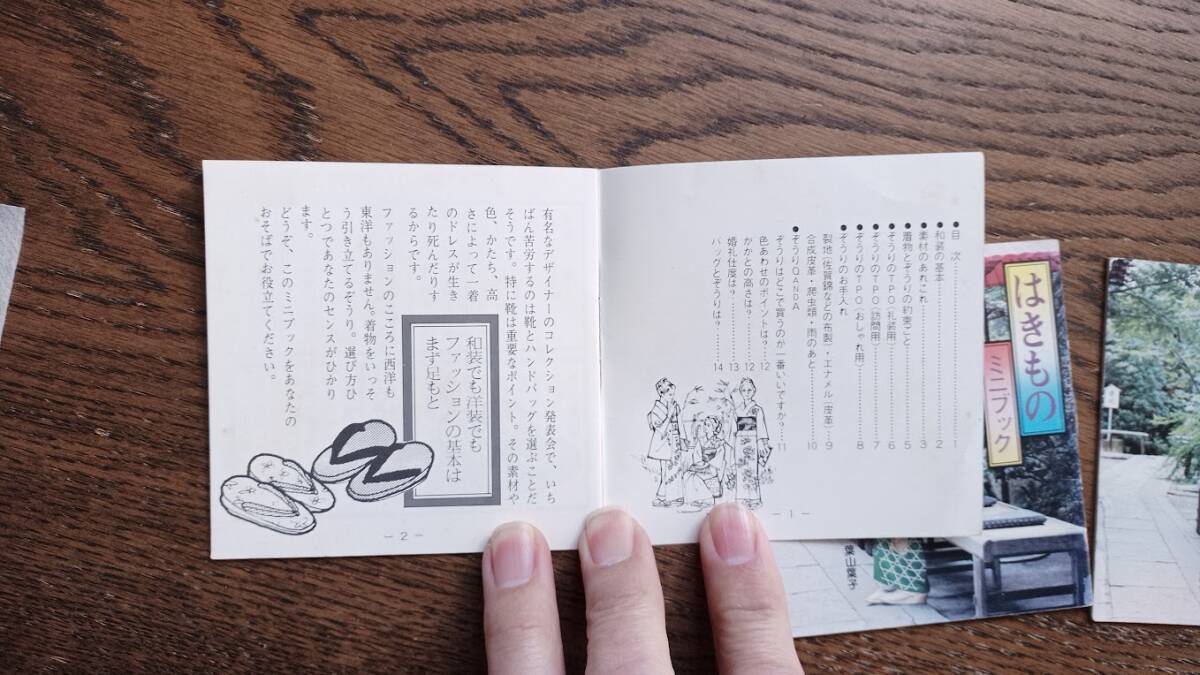 ●目　次……………………1
●和装の基本………………2
●素材のあれこれ…………3
●着物とぞうりの約束ごと…5
●ぞうりのTPO(礼装用)……6
●ぞうりのTPO(訪問用)……7
●ぞうりのTPO(おしゃれ用)…8
●ぞうりのお手入れ
裂地(佐賀錦などの布製)・エナメル(皮革)…9
合成皮革・爬虫類・雨のあと………10
●ぞうりQANDA
ぞうりはどこで買うのが一番いいですか?…11
色あわせのポイントは?……12
かかとの高さは?……12
婚礼仕度は?……13
バッグとぞうりは?……14
－1－
和装でも洋装でも
ファッションの基本は
まず足もと
有名なデザイナーのコレクション発表会で、いち
ばん苦労するのは靴とハンドバッグを選ぶことだ
そうです。特に靴は重要なポイント。その素材や
色、かたち、高
さによって一着
のドレスが生き
たり死んだりす
るからです。
ファッションのこころに西洋も
東洋もありません。着物をいっそ
う引き立てるぞうり。選び方ひ
とつであなたのセンスがひかり
ます。
どうぞ、このミニブックをあなたの
おそばでお役立てください。
－2－
はきもの
ミニブック
葉山葉子